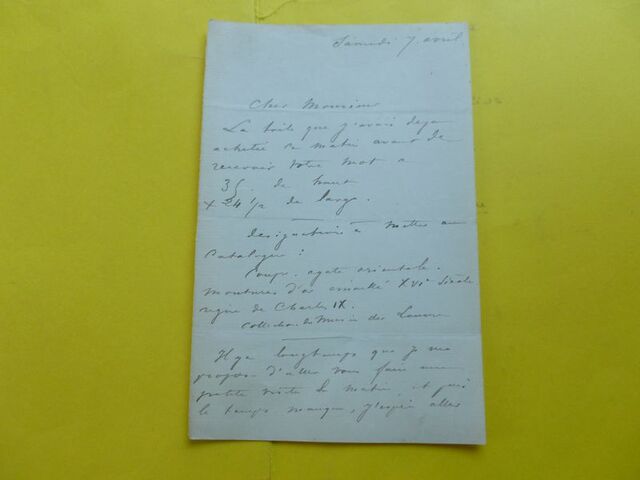 Samedi 7 avril
Cher Monsieur
La toile que j'avais deja
achetée ce matin avant de
recevoir votre mot a
35 de haut
x 24 1/2 de large.
Designation à mettre au
Catalogue :
Coupe agate orientale.
montures d'or émaillé XVIe siècle
règne de Charles IX.
Collection du Musée du Louvre
Il y a longtemps que je me
propose d'aller vous faire une
petite visite le matin, et puis
le temps manque, j'espère aller